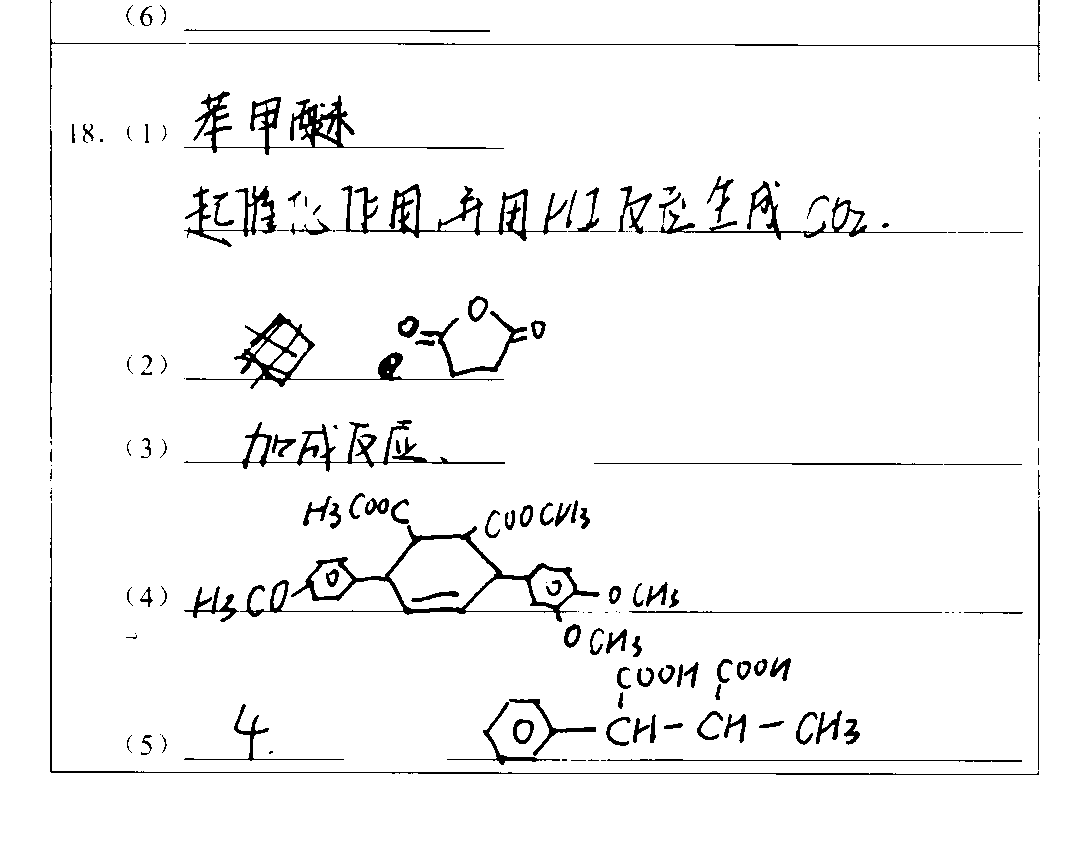 (6)
18. (1) 苯甲醚
起催化作用,并用HI反应生成CO2.
(2) O O O
(3) 加成反应、
H3COOC COOCH3
(4) H3CO OCH3
OCH3
COOH COOH
(5) 4. CH-CH-CH3